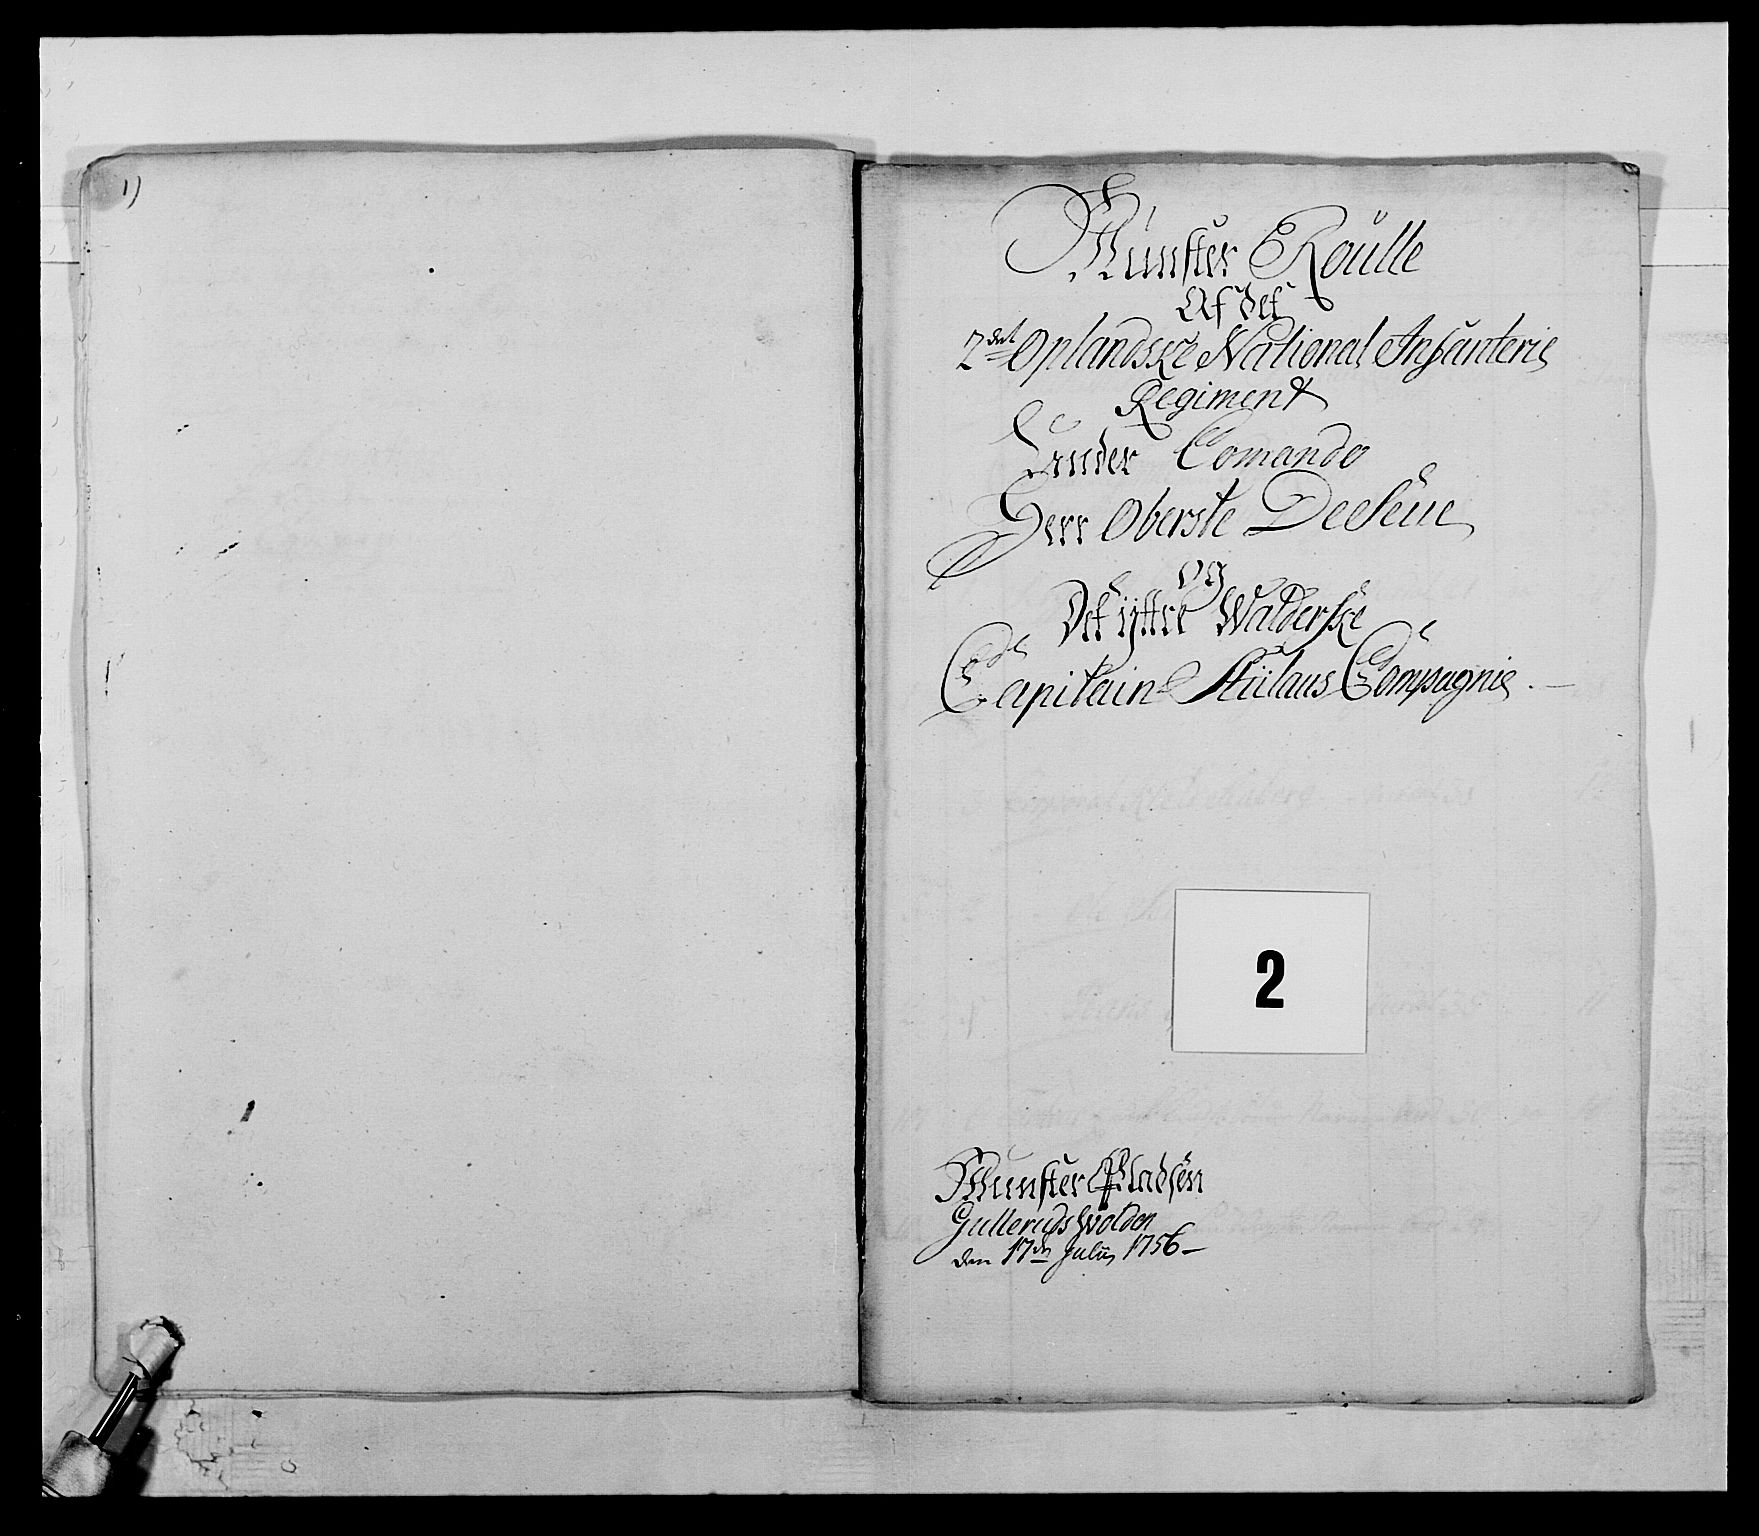 1)
Munster Roulle
Af det
2det Oplandske National Infanterie
Regiment
Under Comando
Herr Oberste DeSeue
og
Det ÿttre Walderske
Capitain Stülaus Compagnie.
2
Munster Pladsen
Gullerudswolden
den 17de Julii 1756